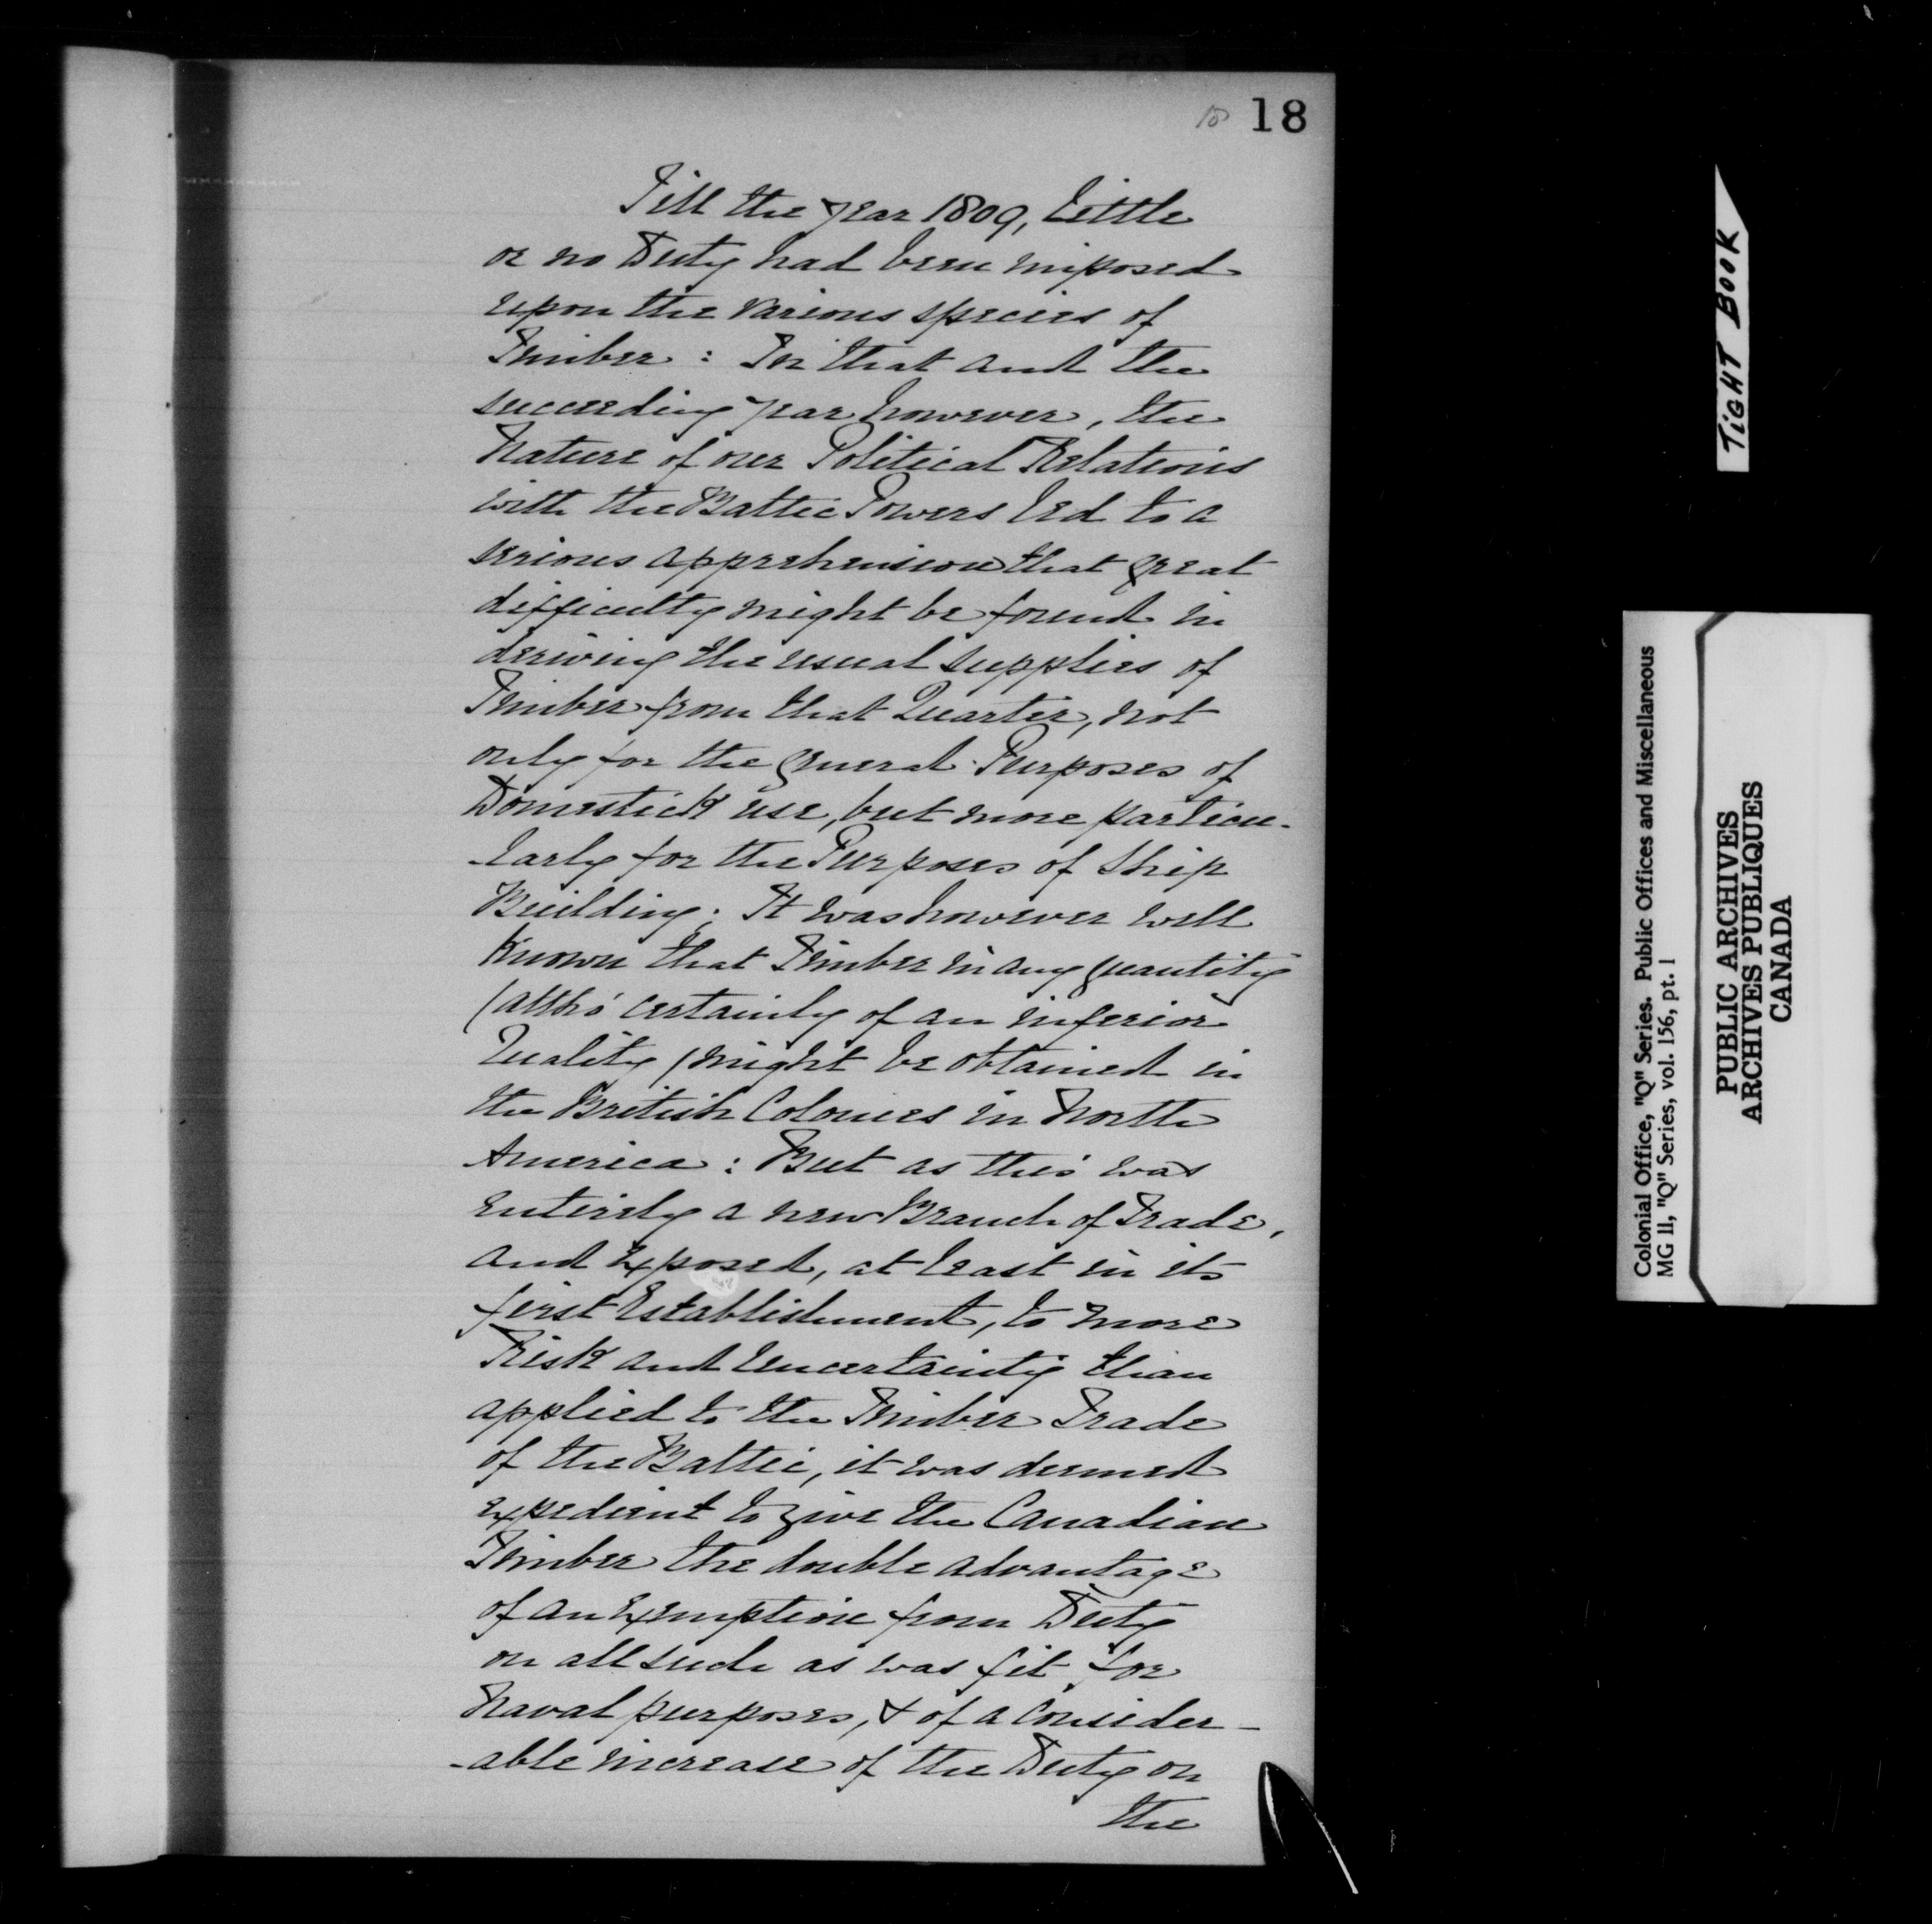 18 18
Till the year 1809, little
or no Duty had been imposed
upon the various species of
Timber : In that and the
succeeding year however, the
Nature of our Political Relations
with the Baltic Powers led to a
serious apprehension that great
difficulty might be found in
deriving the usual supplies of
Timber from that Quarter, not
only for the general Purposes of
Domestick use, but more particu-
-larly for the Purposes of Ship
Building; It was however well
known that Timber in any quantity
(altho' certainly of an inferior
Quality) might be obtained in
the British Colonies in North
America : But as this was
entirely a new Branch of Trade,
and exposed, at least in its
first Establishment, to more
Risk and Uncertainty than
applied to the Timber Trade
of the Baltic, it was deemed
expedient to give the Canadian
Timber the double advantage
of an Exemption from Duty
on all such as was fit for
Naval purposes, & of a consider-
-able increase of the Duty on
the
TiGHT BOOK
Colonial Office, "Q" Series. Public Offices and Miscellaneous
MG 11, "Q" Series, vol. 156, pt. 1
PUBLIC ARCHIVES
ARCHIVES PUBLIQUES
CANADA